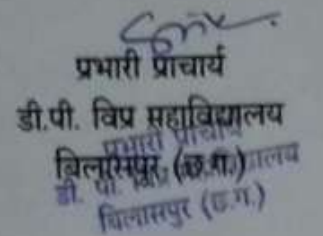 प्रभारी प्राचार्य
डी.पी. विप्र महाविद्यालय
बिलासपुर (छ.ग.)
प्रभारी प्राचार्य
डी. पी. विप्र महाविद्यालय
बिलासपुर (छ.ग.)